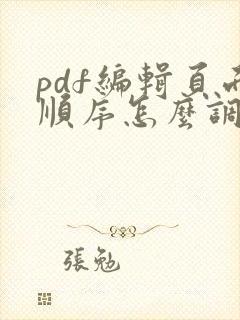 pdf編輯頁面
順序怎麼調
張勉